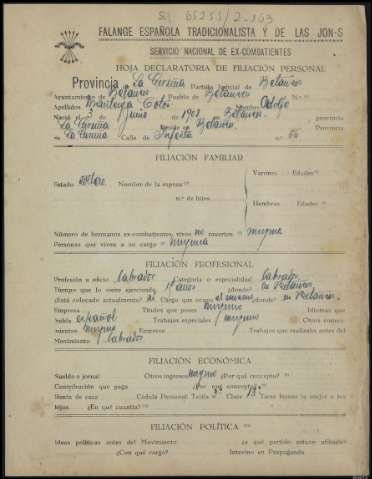 FALANGE ESPAÑOLA TRADICIONALISTA Y DE LAS JON-S
SERVICIO NACIONAL DE EX-COMBATIENTES
HOJA DECLARATORIA DE FILIACIÓN PERSONAL
Provincia de La Coruña Partido Judicial de Betanzos
Ayuntamiento de Betanzos Pueblo de Betanzos
Apellidos Nombre Adolfo
Nació el de Junio de 1903 en Betanzos provincia
La Coruña Vecino de Betanzos provincia
La Coruña Calle de n.º
FILIACIÓN FAMILIAR
Estado soltero Nombre de la esposa Varones Edades
n.º de hijos
Hembras Edades
Número de hermanos ex-combatientes, vivos no muertos ninguno
Personas que viven a su cargo ninguna
FILIACIÓN PROFESIONAL
Profesión u oficio labrador Categoría o especialidad labrador
Tiempo que lo viene ejerciendo años ¿dónde? en Betanzos
¿Está colocado actualmente? si Cargo que ocupa el mismo ¿dónde? en Betanzos
Empresa Títulos que posee ninguno Idiomas que
habla español Trabajos especiales ninguno Otros conoci-
mientos ninguno Empresa Trabajos que realizaba antes del
Movimiento labrador
FILIACIÓN ECONÓMICA
Sueldo o jornal Otros ingresos ninguno ¿Por qué concepto?
Contribución que paga ¿Por qué concepto?
Renta de casa Cédula Personal: Tarifa 3ª Clase 13ª Tiene
hijos ¿En qué cuantía?
FILIACIÓN POLÍTICA
Ideas políticas antes del Movimiento ¿a qué partido estuvo afiliado?
¿Con qué cargo? Intervino en Propaganda